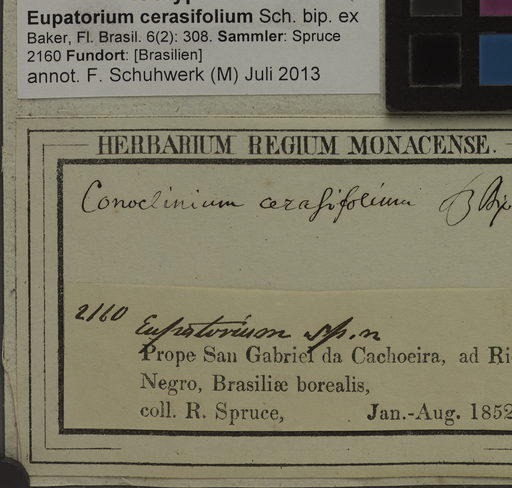 Eupatorium cerasifolium Sch. bip. ex
Baker, Fl. Brasil. 6(2): 308. Sammler: Spruce
2160 Fundort: [Brasilien]
annot. F. Schuhwerk (M) Juli 2013
HERBARIUM REGIUM MONACENSE.
Conoclinium cerasifolium
2160 Eupatorium sp. n
Prope San Gabriel da Cachoeira, ad
Negro, Brasiliæ borealis,
coll. R. Spruce, Jan.-Aug. 1852